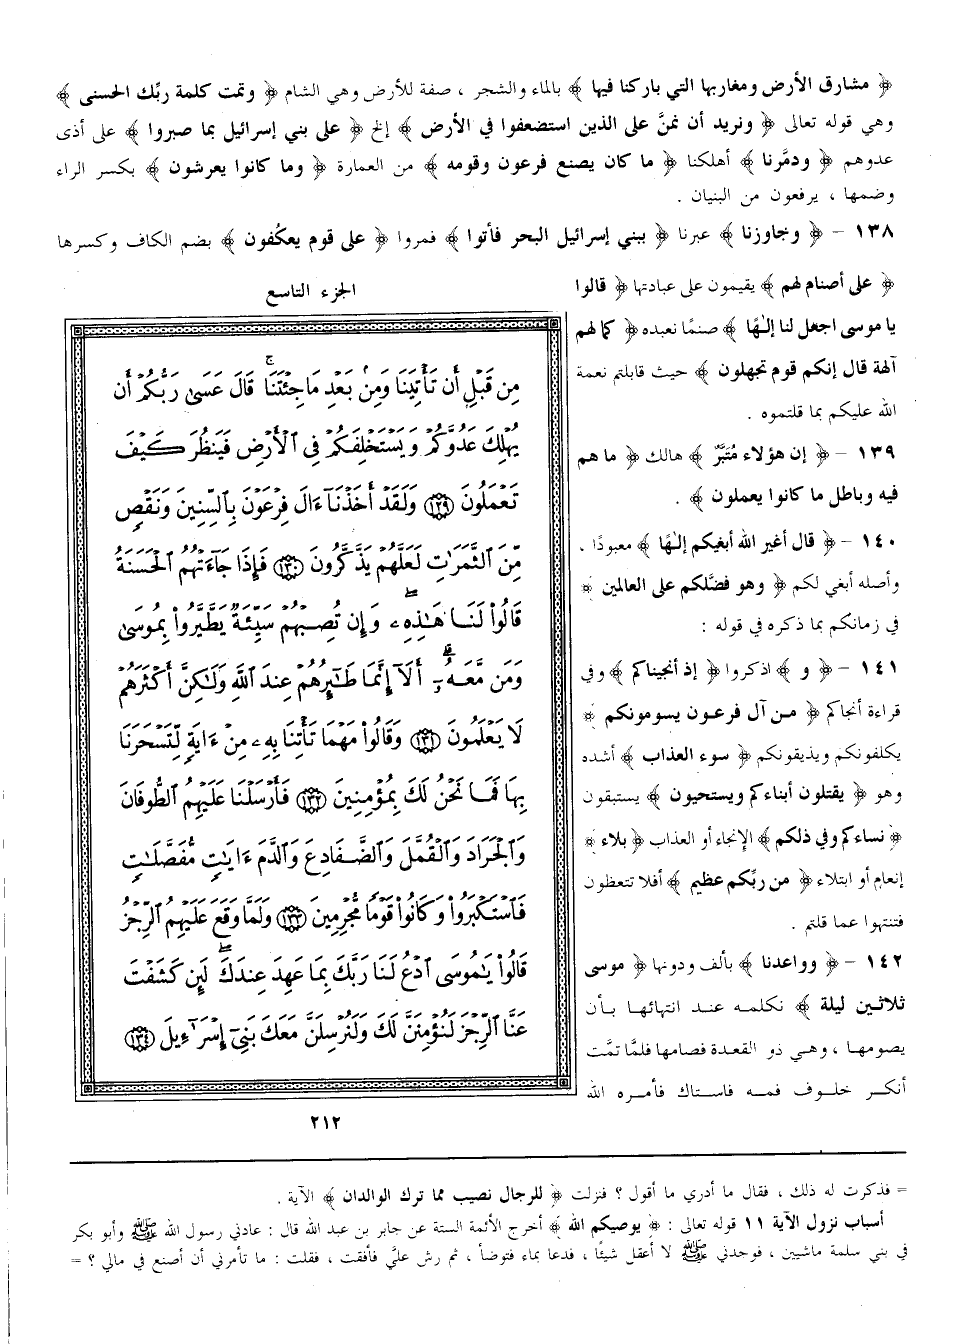 ﴿ مشارق الأرض ومغاربها التي باركنا فيها ﴾ بالماء والشجر ، صفة للأرض وهي الشام ﴿ وتمت كلمة ربّك الحسنى ﴾
وهي قوله تعالى ﴿ ونريد أن نمنَّ على الذين استضعفوا في الأرض ﴾ إلخ ﴿ على بني إسرائيل بما صبروا ﴾ على أذى
عدوهم ﴿ ودمَّرنا ﴾ أهلكنا ﴿ ما كان يصنع فرعون وقومه ﴾ من العمارة ﴿ وما كانوا يعرشون ﴾ بكسر الراء
وضمها ، يرفعون من البنيان .
١٣٨ – ﴿ وجاوزنا ﴾ عبرنا ﴿ ببني إسرائيل البحر فأتوا ﴾ فمروا ﴿ على قوم يعكُفون ﴾ بضم الكاف وكسرها
﴿ على أصنام لهم ﴾ يقيمون على عبادتها ﴿ قالوا
يا موسى اجعل لنا إلـٰهًا ﴾ صنمًا نعبده ﴿ كما لهم
آلهة قال إنكم قوم تجهلون ﴾ حيث قابلتم نعمة
الله عليكم بما قلتموه .
١٣٩ – ﴿ إن هؤلاء مُتَبَّرٌ ﴾ هالك ﴿ ما هم
فيه وباطل ما كانوا يعملون ﴾ .
١٤٠ – ﴿ قال أغير الله أبغيكم إلـٰهًا ﴾ معبودًا ،
وأصله أبغي لكم ﴿ وهو فضَّلكم على العالمين ﴾
في زمانكم بما ذكره في قوله :
١٤١ – ﴿ و ﴾ اذكروا ﴿ إذ أنجيناكم ﴾ وفي
قراءة أنجاكم ﴿ من آل فرعون يسومونكم ﴾
يكلفونكم ويذيقونكم ﴿ سوء العذاب ﴾ أشده
وهو ﴿ يقتلون أبناءكم ويستحيون ﴾ يستبقون
﴿ نساءكم وفي ذلكم ﴾ الإنجاء أو العذاب ﴿ بلاء ﴾
إنعام أو ابتلاء ﴿ من ربّكم عظيم ﴾ أفلا تتعظون
فتنتهوا عما قلتم .
١٤٢ – ﴿ وواعدنا ﴾ بألف ودونها ﴿ موسى
ثلاثين ليلة ﴾ نكلمه عند انتهائها بأن
يصومها ، وهي ذو القعدة فصامها فلمَّا تمَّت
أنكر خلوف فمه فاستاك فأمره الله
الجزء التاسع
مِن قَبْلِ أَن تَأْتِيَنَا وَمِنۢ بَعْدِ مَا جِئْتَنَا ۚ قَالَ عَسَىٰ رَبُّكُمْ أَن
يُهْلِكَ عَدُوَّكُمْ وَيَسْتَخْلِفَكُمْ فِي ٱلْأَرْضِ فَيَنظُرَ كَيْفَ
تَعْمَلُونَ ١٢٩ وَلَقَدْ أَخَذْنَآ ءَالَ فِرْعَوْنَ بِٱلسِّنِينَ وَنَقْصٍ
مِّنَ ٱلثَّمَرَٰتِ لَعَلَّهُمْ يَذَّكَّرُونَ ١٣٠ فَإِذَا جَآءَتْهُمُ ٱلْحَسَنَةُ
قَالُوا۟ لَنَا هَـٰذِهِۦ ۖ وَإِن تُصِبْهُمْ سَيِّئَةٌ يَطَّيَّرُوا۟ بِمُوسَىٰ
وَمَن مَّعَهُۥٓ ۗ أَلَآ إِنَّمَا طَـٰٓئِرُهُمْ عِندَ ٱللَّهِ وَلَـٰكِنَّ أَكْثَرَهُمْ
لَا يَعْلَمُونَ ١٣١ وَقَالُوا۟ مَهْمَا تَأْتِنَا بِهِۦ مِنْ ءَايَةٍ لِّتَسْحَرَنَا
بِهَا فَمَا نَحْنُ لَكَ بِمُؤْمِنِينَ ١٣٢ فَأَرْسَلْنَا عَلَيْهِمُ ٱلطُّوفَانَ
وَٱلْجَرَادَ وَٱلْقُمَّلَ وَٱلضَّفَادِعَ وَٱلدَّمَ ءَايَـٰتٍ مُّفَصَّلَـٰتٍ
فَٱسْتَكْبَرُوا۟ وَكَانُوا۟ قَوْمًا مُّجْرِمِينَ ١٣٣ وَلَمَّا وَقَعَ عَلَيْهِمُ ٱلرِّجْزُ
قَالُوا۟ يَـٰمُوسَى ٱدْعُ لَنَا رَبَّكَ بِمَا عَهِدَ عِندَكَ ۖ لَئِن كَشَفْتَ
عَنَّا ٱلرِّجْزَ لَنُؤْمِنَنَّ لَكَ وَلَنُرْسِلَنَّ مَعَكَ بَنِىٓ إِسْرَٰٓءِيلَ ١٣٤
٢١٢
= فذكرت له ذلك ، فقال ما أدري ما أقول ؟ فنزلت ﴿ للرجال نصيب مما ترك الوالدان ﴾ الآية .
أسباب نزول الآية ١١ قوله تعالى : ﴿ يوصيكم الله ﴾ أخرج الأئمة الستة عن جابر بن عبد الله قال : عادني رسول الله ﷺ وأبو بكر
في بني سلمة ماشيين ، فوجدني ﷺ لا أعقل شيئًا ، فدعا بماء فتوضأ ، ثم رش عليَّ فأفقت ، فقلت : ما تأمرني أن أصنع في مالي ؟ =